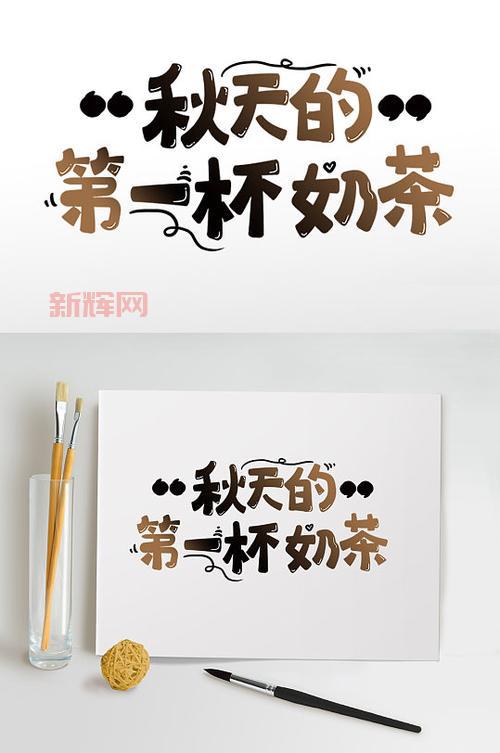 “秋天的”
第一杯奶茶
新辉网
“秋天的”
第一杯奶茶